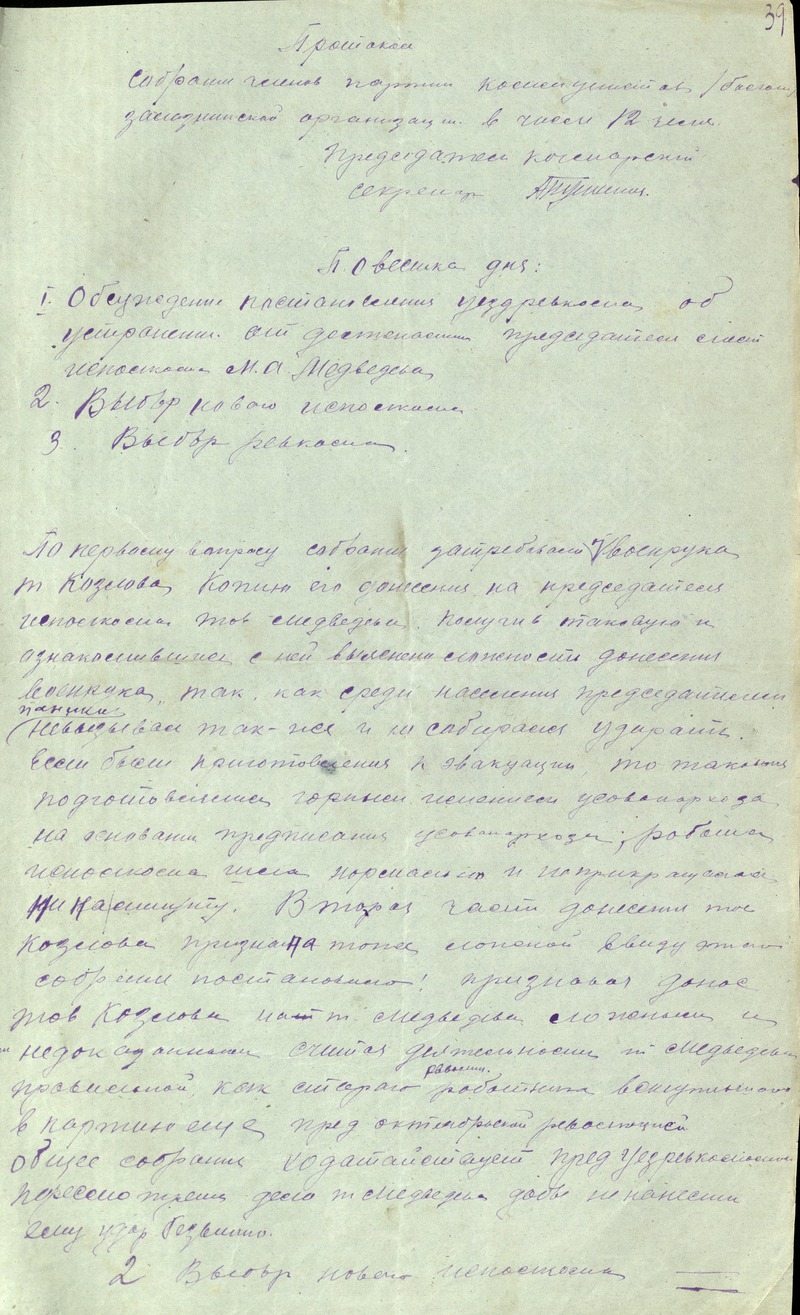 39
Протокол
собрания членов партии коммунистов /большев
организации в числе 12 человек.
Председатель Комнарский
секретарь
Повестка дня:
1. Обсуждения постановления уездревкома об
устранении от должности председателя
исполкома М.А. Медведева
2. Выбор нового исполкома
3 Выбор ревкома
По первому вопросу собрания затребовали у военрука
т Козлова копию его донесения на председателя
исполкома тов Медведева. Получив таковую и
ознакомившись с ней выяснено ложность донесения
военрука, так, как среди населения председателем
паники
невызывал так-же и не собирался удирать.
Если были приготовления к эвакуации, то таковыя
подготовлялись горным имением
на основании предписания ; работа
исполкома шла нормально и неприкращалась
ни на минуту. Вторая часть донесения тов
Козлова признана тоже ложной ввиду этого
собрания постановило! признавая донос
тов Козлова на т. Медведева ложным и
недоказанным считая деятельность т Медведева
правильной, как старого работника вступившаго
в партию еще пред октябрьской революцией
общее собрания ходатайствует пред Уездревкомом
пересмотрения дело т Медведева дабы не нанести
ему удар безвинно.
2 Выбор нового исполкома